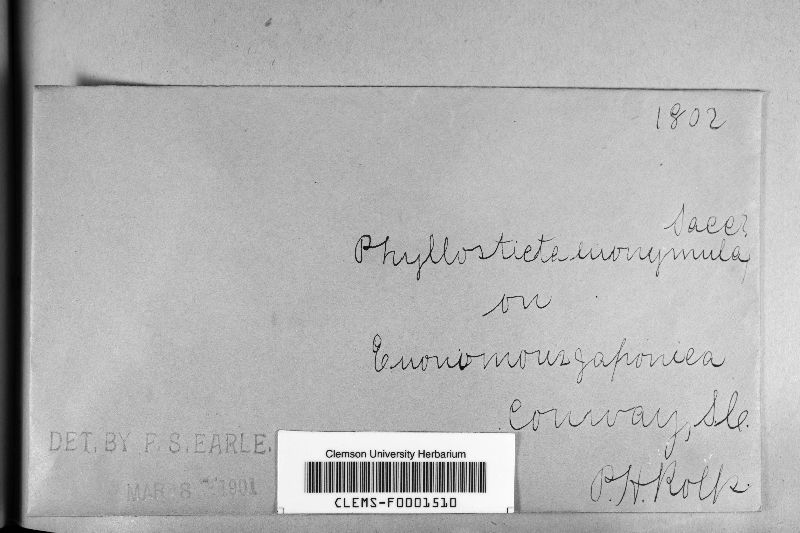 1802
Sacc?
Phyllosticta euonymula,
on
Euonomous japonica
Conway, S.C.
P. H. Rolfs.
DET. BY F. S. EARLE.
MAR 8 1901
Clemson University Herbarium
CLEMS-F0001510